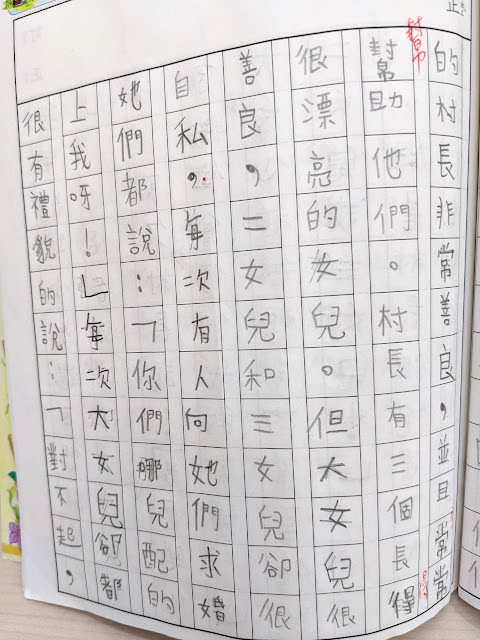 的村長非常善良，並且常常
幫
幫助他們。村長有三個長得
很漂亮的女兒。但大女兒很
善良，二女兒和三女兒卻很
自私，每次有人向她們求婚
她們都說：「你們哪兒配的
上我呀！」每次大女兒卻都
很有禮貌的說：「對不起，